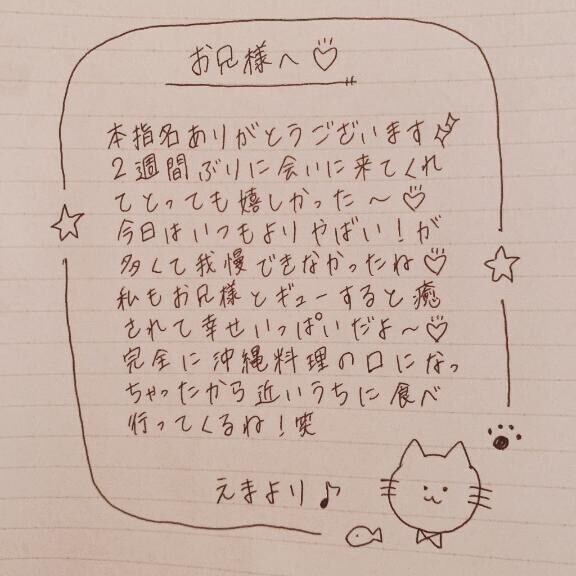 お兄様へ♡
本指名ありがとうございます
2週間ぶりに会いに来てくれ
てとっても嬉しかった〜♡
今日はいつもよりやばい!が
多くて我慢できなかったね♡
私もお兄様とギューすると癒
されて幸せいっぱいだよ〜♡
完全に沖縄料理の口になっ
ちゃったから近いうちに食べ
行ってくるね!笑
えまより♪